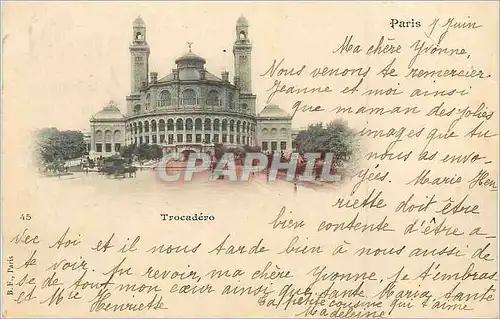 Paris 7 Juin
Ma chère Yvonne,
Nous venons te remercier
Jeanne et moi ainsi
que maman des jolies
images que tu
nous as envo-
yées. Marie Hen-
riette doit être
bien contente d'être a-
vec toi et il nous tarde bien à nous aussi de
te voir. Au revoir, ma chère Yvonne. Je t'embras
se de tout mon cœur ainsi que tante Maria, tante
et Mie Henriette
Ta petite cousine qui t'aime
Madeleine
CAPHIL
45
Trocadéro
B. F. Paris